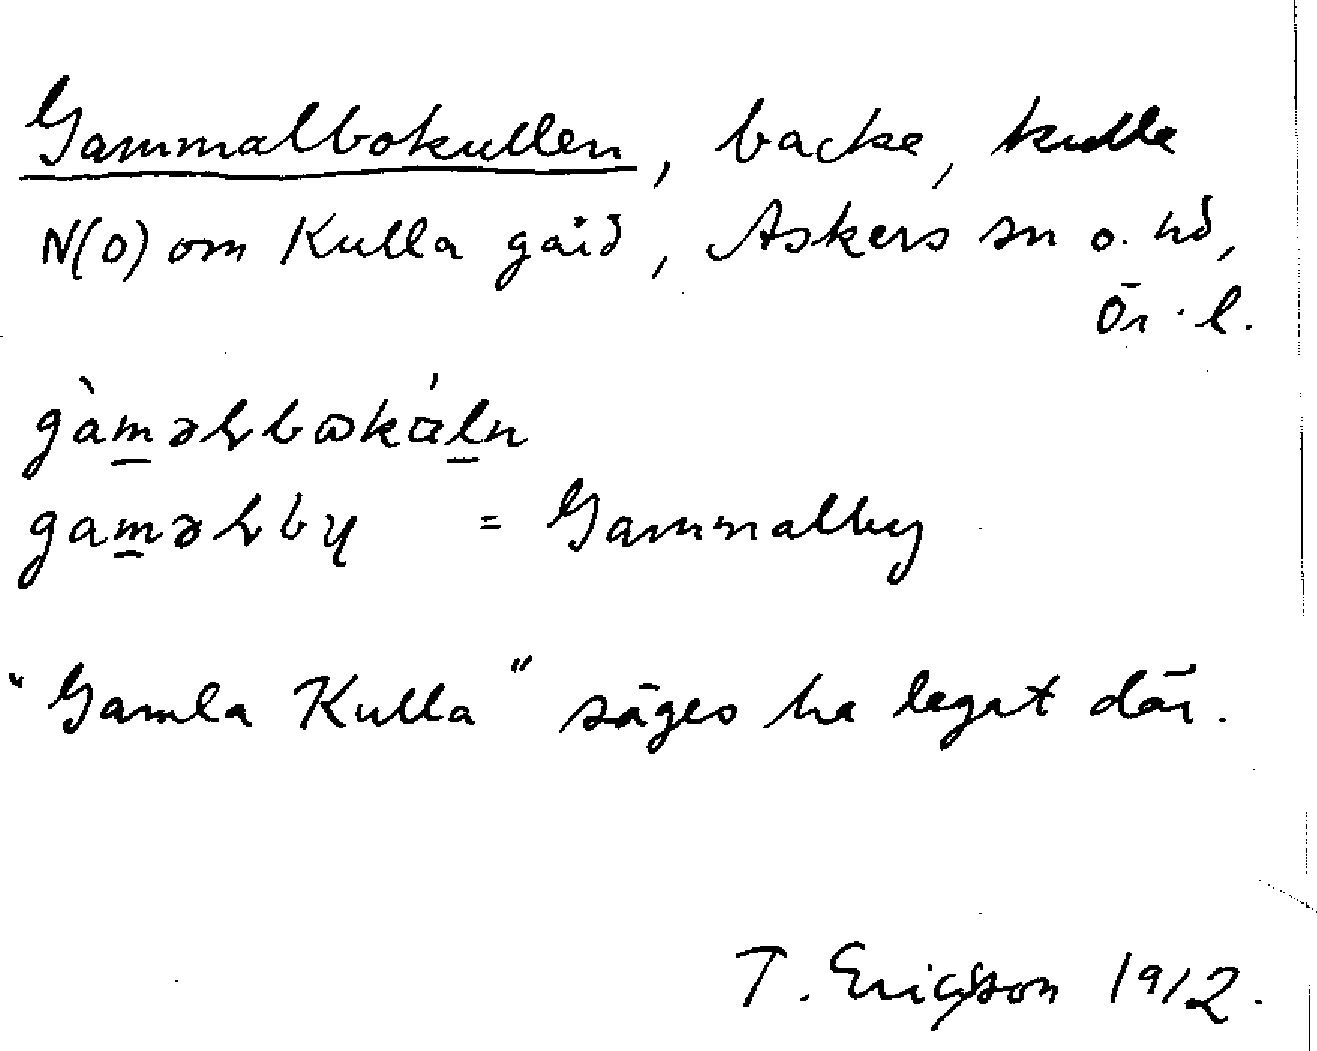 Gammalbokullen, backe, kulle
N(O) om Kulla gård, Askers sn o. hd,
Ör. l.
gàməɭbɷkɑ́ln
gaməɭby = Gammalby
"Gamla Kulla" säges ha legat där.
T. Ericsson 1912.